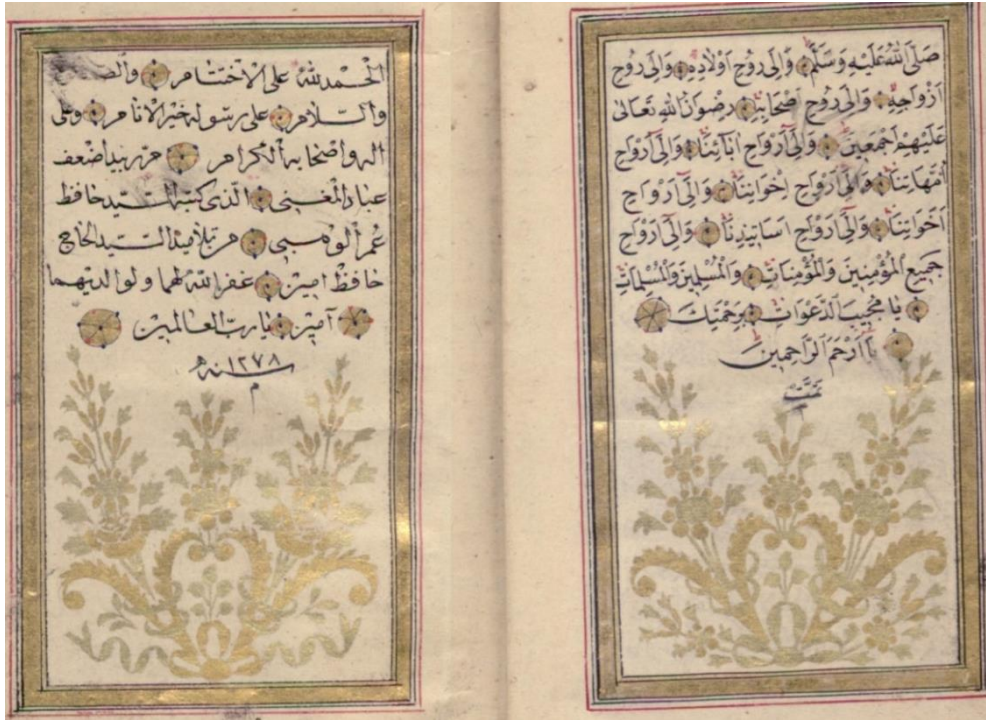 صَلَّى اللهُ عَلَيْهِ وَسَلَّمْ وَاِلٰى رُوحِ اَوْلَادِهِ وَاِلٰى رُوحِ
اَزْوَاجِهِ وَاِلٰى رُوحِ اَصْحَابِهِ رِضْوَانُ اللهِ تَعَالٰى
عَلَيْهِمْ اَجْمَعِينَ وَاِلٰى اَرْوَاحِ اٰبَائِنَا وَاِلٰى اَرْوَاحِ
اُمَّهَاتِنَا وَاِلٰى اَرْوَاحِ اِخْوَانِنَا وَاِلٰى اَرْوَاحِ
اَخَوَاتِنَا وَاِلٰى اَرْوَاحِ اَسَاتِيذِنَا وَاِلٰى اَرْوَاحِ
جَمِيعِ الْمُؤْمِنِينَ وَالْمُؤْمِنَاتِ وَالْمُسْلِمِينَ وَالْمُسْلِمَاتِ
يَا مُجِيبَ الدَّعَوَاتِ بِرَحْمَتِكَ
يَا اَرْحَمَ الرَّاحِمِينَ
تمت
الحمد لله على الاختتام
والسلام على رسوله خير الانام وعلى
اله واصحابه الكرام حرره اضعف
عباد المغنى الذى كتبه السيد حافظ
عمر الوهبى من تلاميذ السيد الحاج
حافظ امين غفر الله لهما ولوالديهما
آمين يا رب العالمين
سنه ١٢٧٨
م